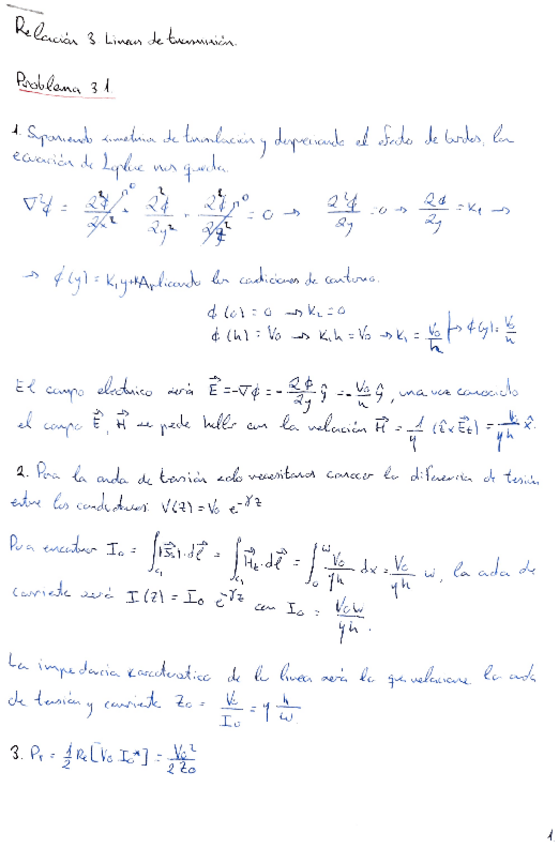 Relación 3 Lineas de transmisión.
Problema 3 1.
1. Suponiendo simetria de translación y despreciando el efecto de bordes, la
ecuación de Laplace nos queda
∇²ϕ = ∂²ϕ/∂x² + ∂²ϕ/∂y² + ∂²ϕ/∂z² = 0 → ∂²ϕ/∂y = 0 → ∂ϕ/∂y = K₁ →
→ ϕ(y) = K₁y+K Aplicando las condiciones de contorno.
ϕ(0) = 0 → K₂ = 0
ϕ(h) = V₀ → K₁h = V₀ → K₁ = V₀/h → ϕ(y) = V₀/h
El campo electrico será E⃗ = -∇ϕ = -∂ϕ/∂y ŷ = -V₀/h ŷ, una vez conocido
el campo E⃗, H⃗ se puede hallar con la relación H⃗ = 1/η (ẑ x E⃗t) = V₀/ηh x̂.
2. Para la onda de tensión solo necesitamos conocer la diferencia de tesión
entre los conductores: V(z) = V₀ e^-γz
Para encontrar I₀ = ∫c₁ |J⃗s|·dl⃗ = ∫c₁ H⃗t·dl⃗ = ∫₀^w V₀/ηh dx = V₀/ηh w, la onda de
corriente será I(z) = I₀ e^-γz con I₀ = V₀w/ηh.
La impedancia caracteristica de la linea será la que relacione la onda
de tensión y corriente Z₀ = V₀/I₀ = η h/w
3. P₁ = 1/2 Re[V₀ I₀*] = V₀²/2Z₀
1